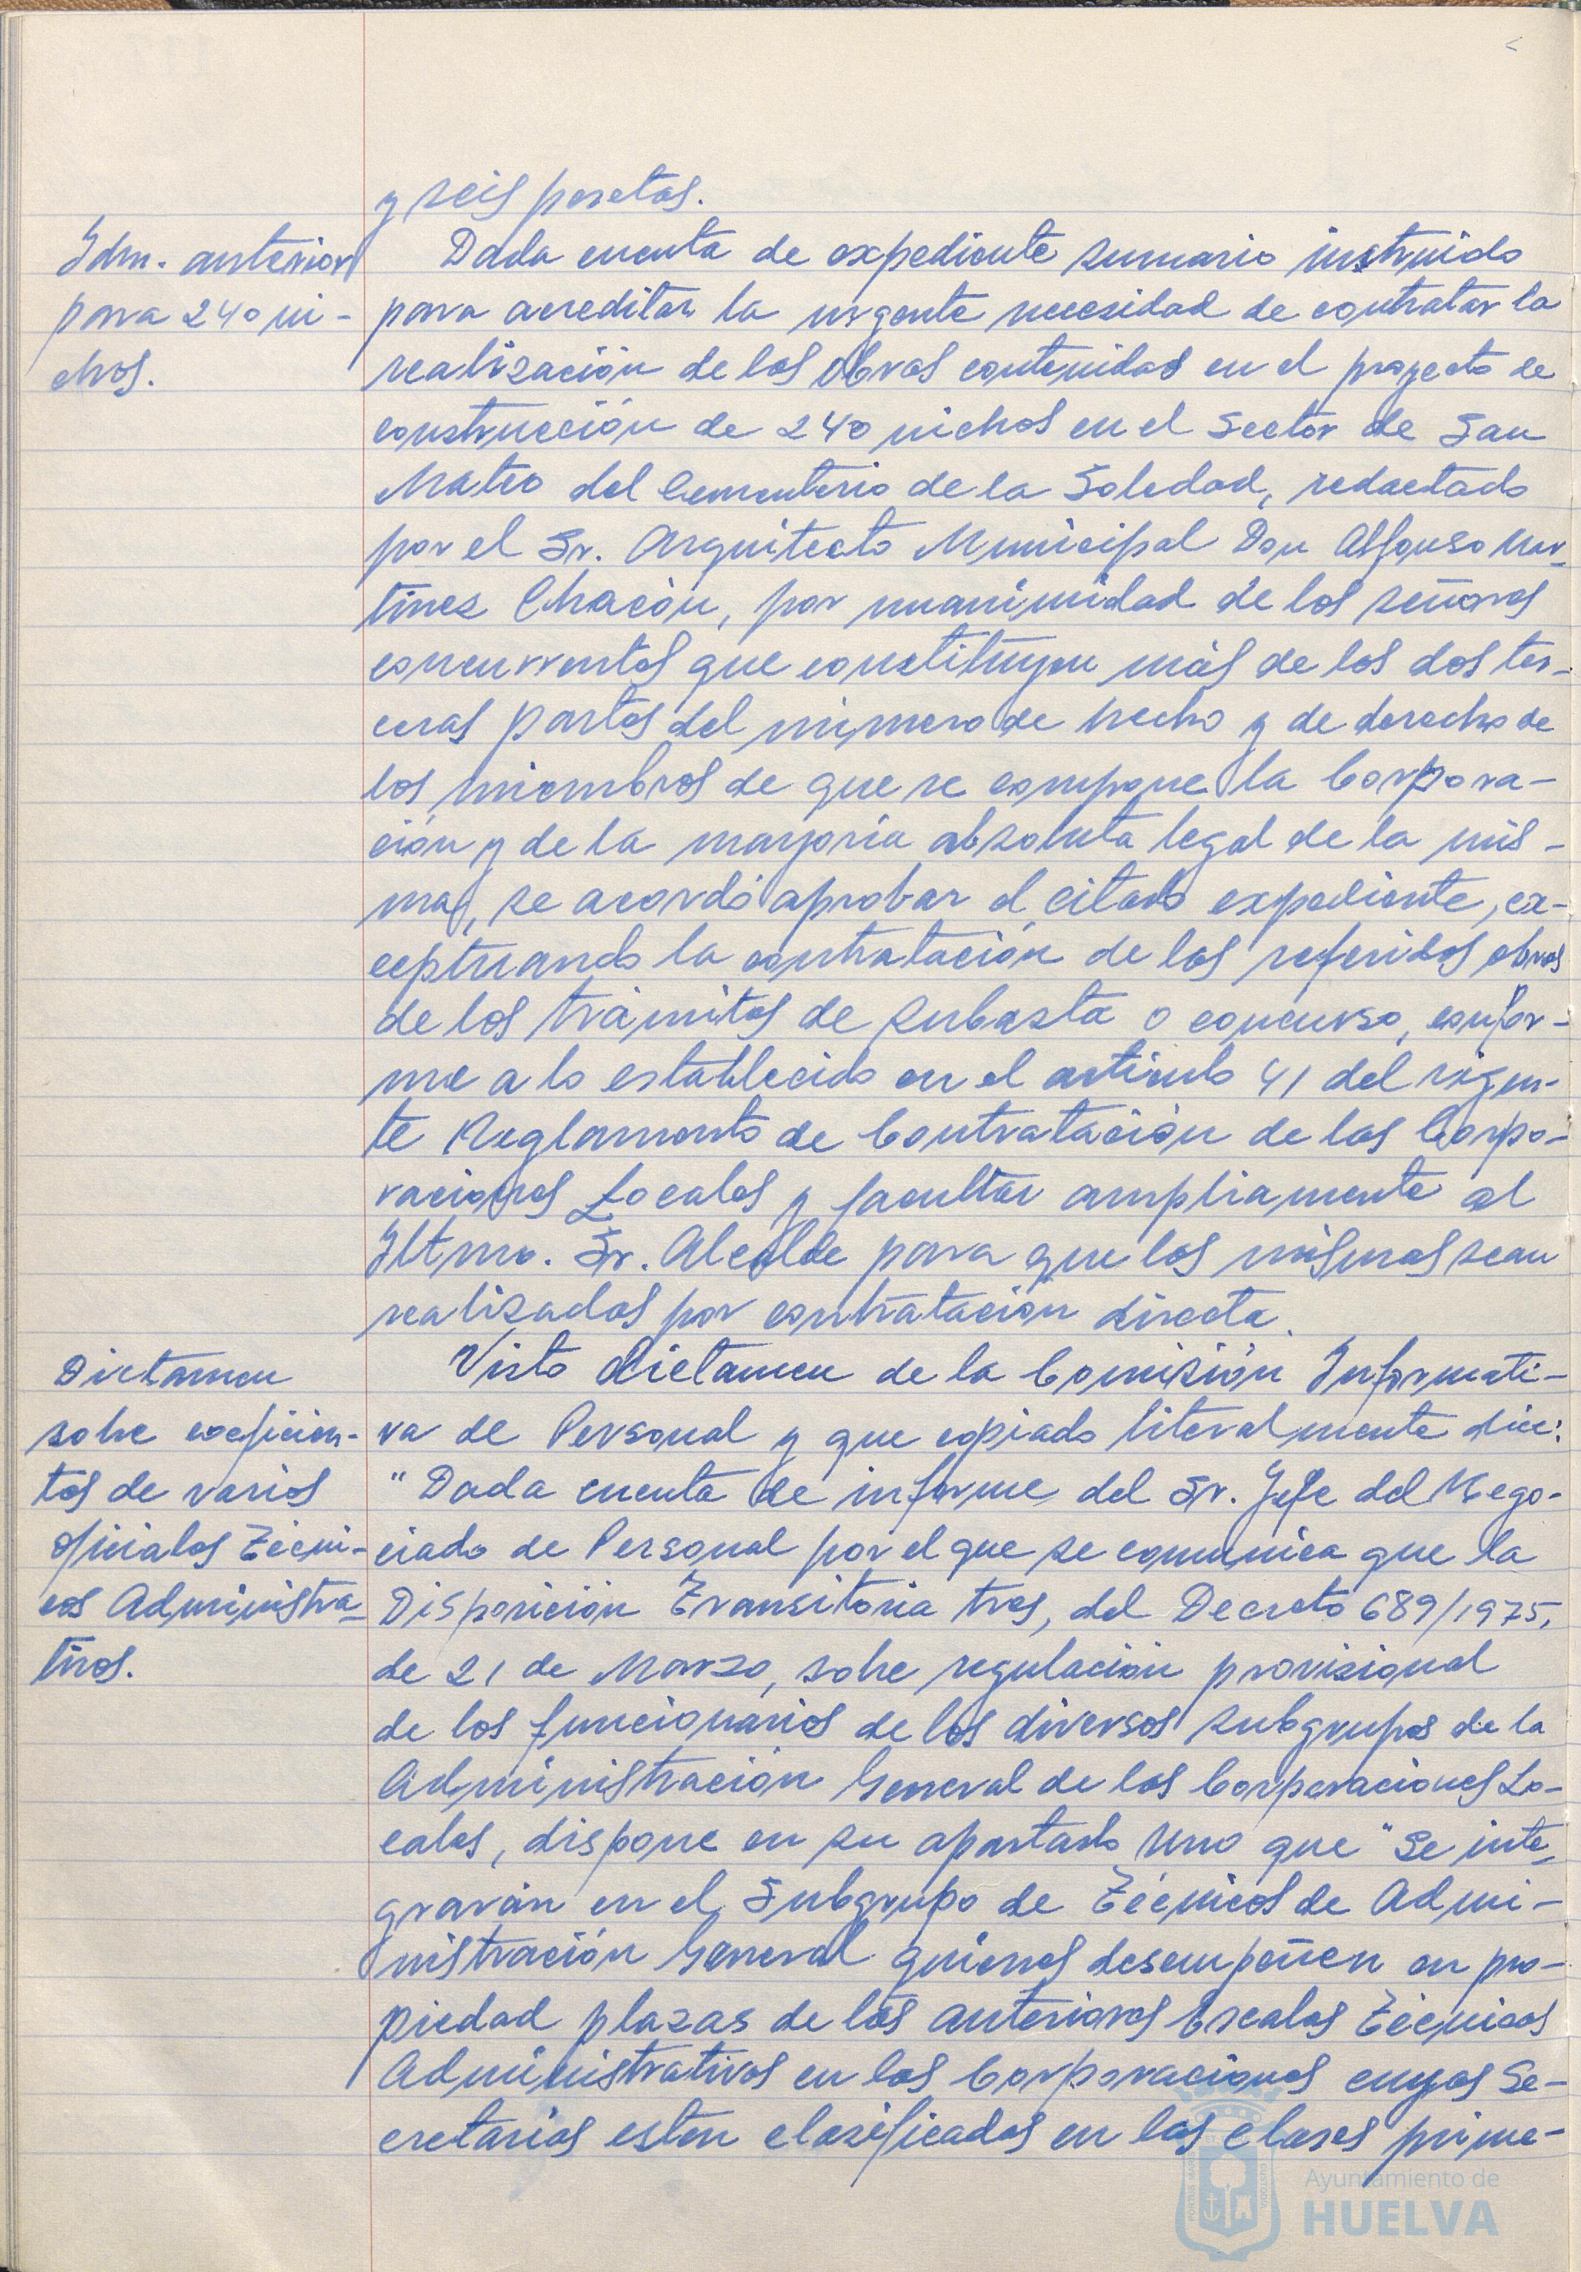 y seis pesetas.
Idm. anterior
para 240 ni-
chos.
Dada cuenta de expediente sumario instruido
para acreditar la urgente necesidad de contratar la
realización de las obras contenidas en el proyecto de
construcción de 240 nichos en el Sector de San
Mateo del Cementerio de la Soledad, redactado
por el Sr. Arquitecto Municipal Don Alfonso Mar-
tínez Chacón, por unanimidad de los señores
concurrentes que constituyen más de los dos ter-
ceras partes del número de hecho y de derecho de
los miembros de que se compone la Corpora-
ción y de la mayoría absoluta legal de la mis-
ma, se acordó aprobar el citado expediente, ex-
ceptuando la contratación de las referidas obras
de los trámites de subasta o concurso, confor-
me a lo establecido en el artículo 41 del vigen-
te Reglamento de Contratación de las Corpo-
raciones Locales y facultar ampliamente al
Iltmo. Sr. Alcalde para que las mismas sean
realizadas por contratación directa.
Dictamen
sobre coeficien-
tes de varios
oficiales Técni-
cos Administra-
tivos.
Visto dictamen de la Comisión Informati-
va de Personal y que copiado literalmente dice:
"Dada cuenta de informe del Sr. Jefe del Nego-
ciado de Personal por el que se comunica que la
Disposición Transitoria tres, del Decreto 689/1975,
de 21 de Marzo, sobre regulación provisional
de los funcionarios de los diversos subgrupos de la
Administración General de las Corporaciones Lo-
cales, dispone en su apartado Uno que "Se inte-
grarán en el Subgrupo de Técnicos de Admi-
nistración General quienes desempeñen en pro-
piedad plazas de las anteriores Escalas Técnicos
Administrativos en las Corporaciones cuyas Se-
cretarías esten clasificadas en las clases prime-
Ayuntamiento de
HUELVA